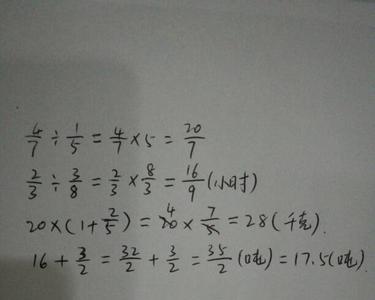 4/7 ÷ 1/5 = 4/7 × 5 = 20/7
2/3 ÷ 3/8 = 2/3 × 8/3 = 16/9 (小时)
20 × (1 + 2/5) = 20 4 × 7/5 = 28 (千克).
16 + 3/2 = 32/2 + 3/2 = 35/2 (吨) = 17.5 (吨).